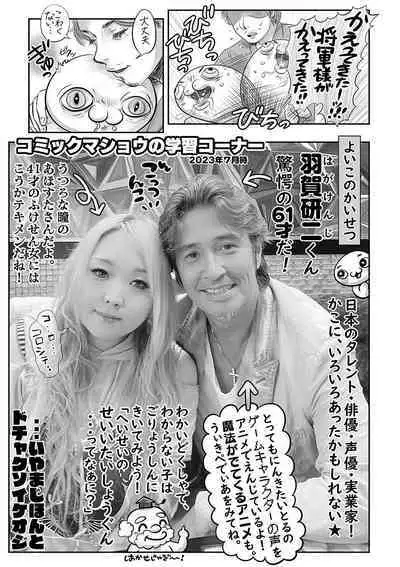 かえってきた!!
将軍様が
かえってきた!!
びちっ
びちっ
びちっ
大丈夫
こわく
ない…
ぎゅっ
コミックマショウの学習コーナー
2023年7月時
よいこのかいせつ
はがけんじ
羽賀研二くん
驚愕の61才だ!
日本のタレント・俳優・声優・実業家!
かこに、いろいろあったかもしれない★
うつろな瞳の
あばずたさんだよ。
41才のふけせん女には
こうかテキメンだね!
コ…ロ…
コロシテ…
とってもにんきたいとるの
ゲームキャラクターの声を
アニメでえんじているよ!
魔法がでてくるアニメも。
うぃきぺでぃあをみてね。
わかいどくしゃで、
わからない子は
ごりょうしんに
きいてみよう!
「へいせいの
せいいたいしょうぐん
…ってなあに?」
…いやまじほんと
ドチャクソイケオジ